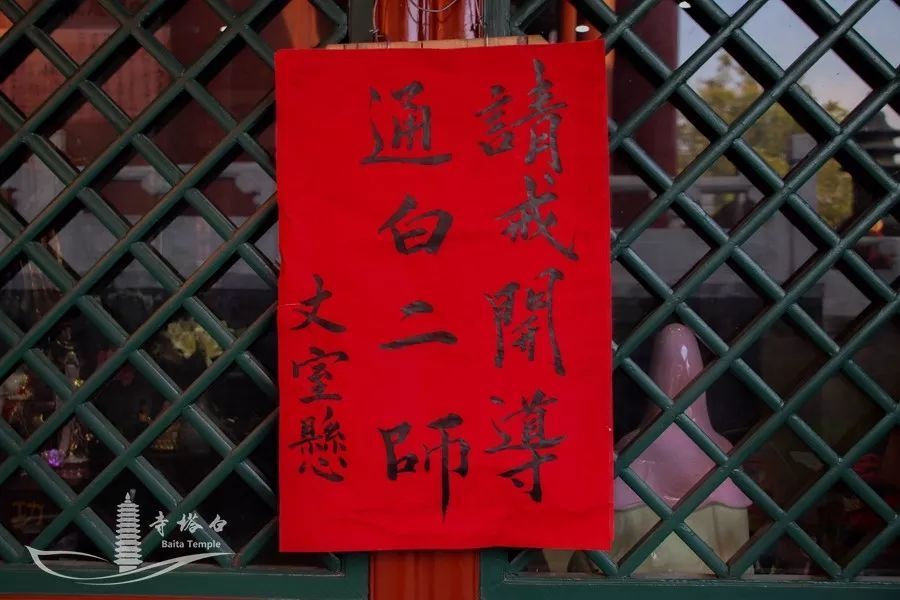 請戒開導
通白二師
丈室懸
寺塔白
Baita Temple